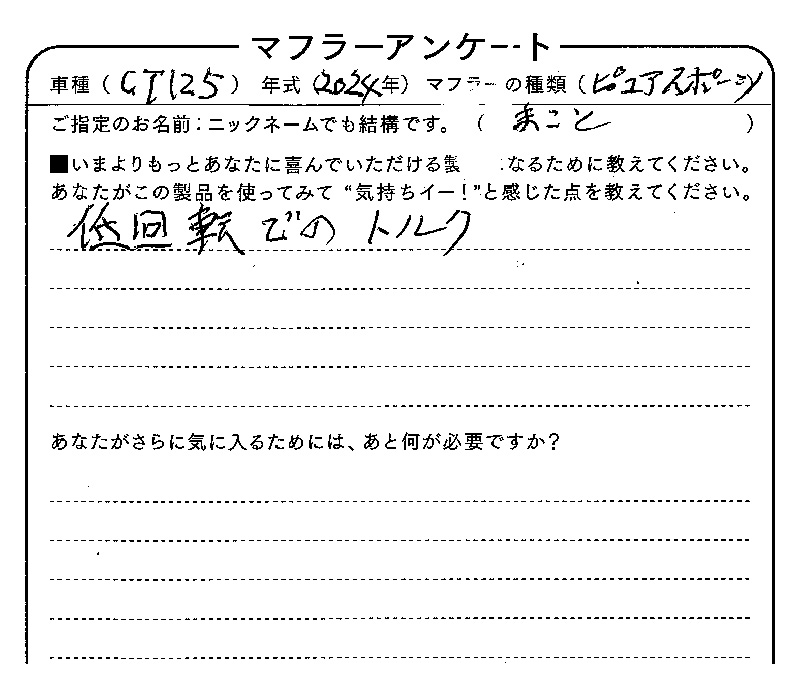 マフラーアンケート
車種（CT125）年式（2024年）マフラーの種類（ピュアスポーツ
ご指定のお名前：ニックネームでも結構です。（まこと）
■いまよりもっとあなたに喜んでいただける製 なるために教えてください。
あなたがこの製品を使ってみて“気持ちイー！”と感じた点を教えてください。
低回転でのトルク
あなたがさらに気に入るためには、あと何が必要ですか？